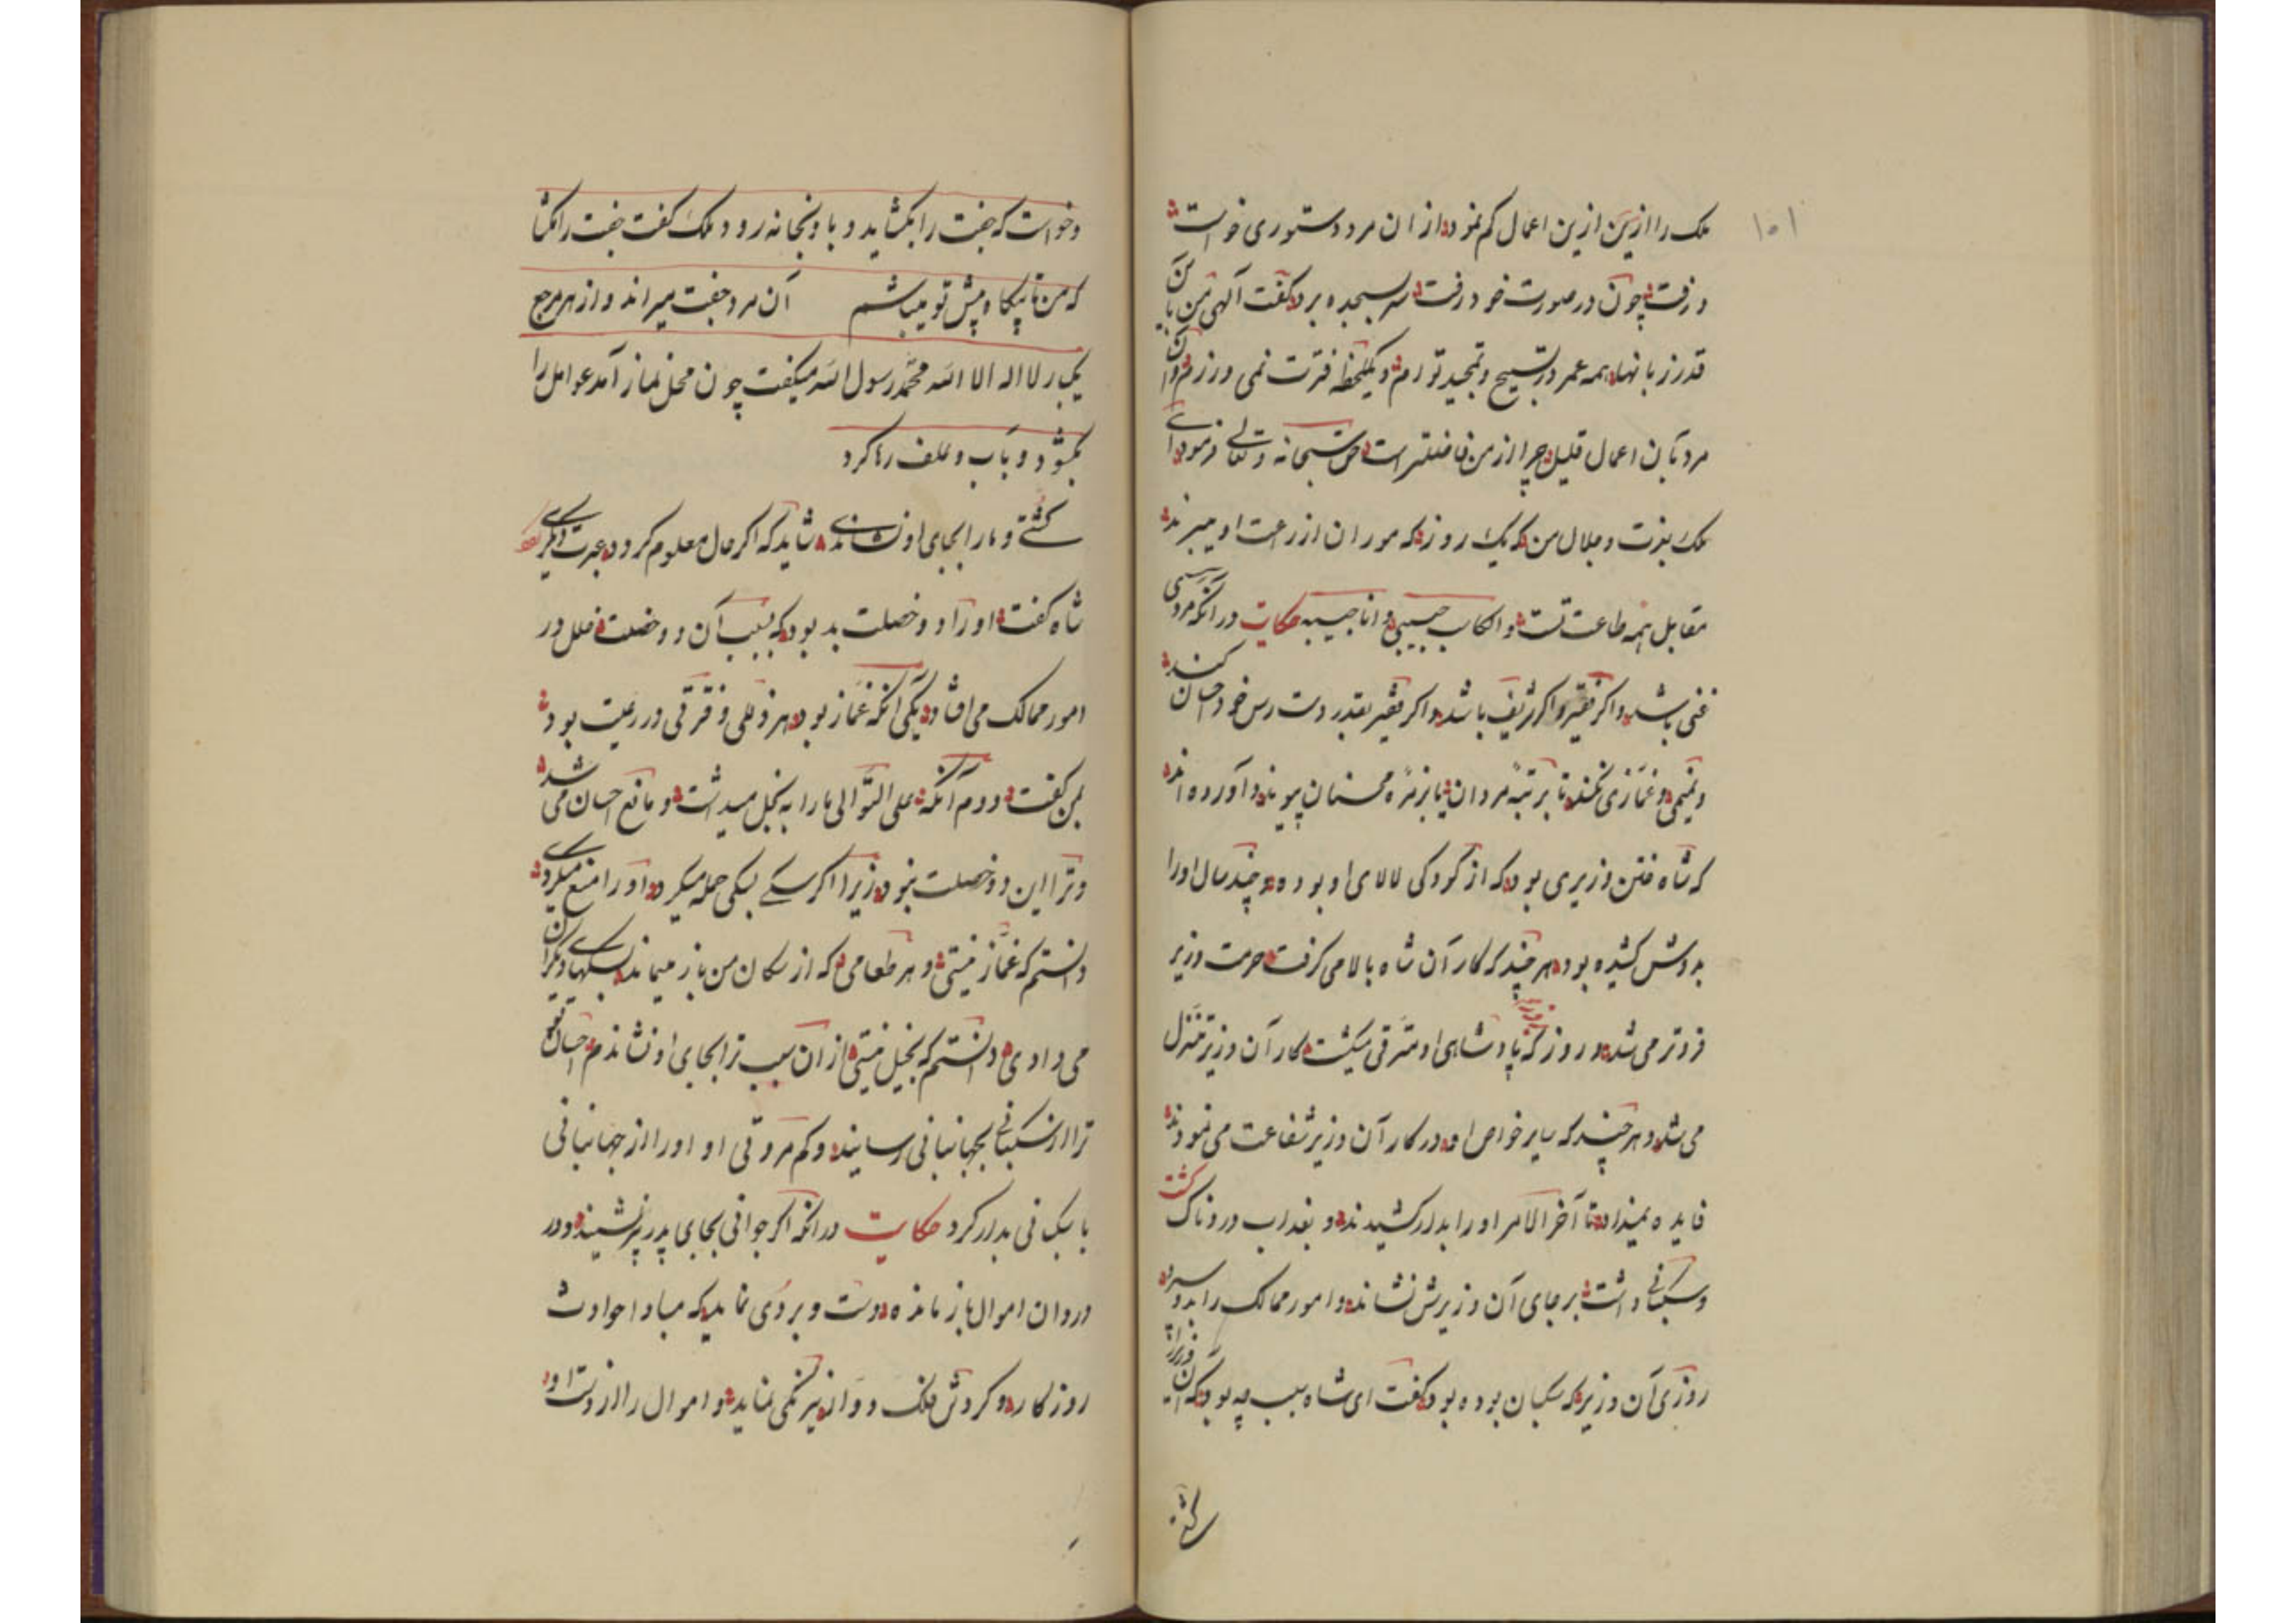 ۱۰۱
ملک را ازین ازین اعمال کم نمود از ان مرد دستوری خواست
و رفت چون در صورت خود رفت سر بسجده برد گفت آلهی من باین
قدر زبانها همه عمر در تسبیح و تمجید توام و یکلحظه فترت نمی ورزم و آن
مرد بآن اعمال قلیل چرا از من فاضلتر است حق سبحانه و تعالی فرمود ای
ملک بعزت و جلال من که یک روز که موران از زرعت او میبرند
مقابل همه طاعت تست و الکاسب حبیبی و انا حبیبه حکایت در آنکه مرد سی
غنی باشد و اکر فقیر و اکر شریف باشد و اکر فقیر بقدر دست رس خود احسان کند
و نمیمی و غمازی نکند تا برتبهٔ مردان یا بزمرهٔ محسنان پیوندد آورده اند
که شاه ختن وزیری بود که از کودکی لالای او بوده و چند سال او را
بدوش کشیده بود هر چند که کار آن شاه بالا می کرفت حرمت وزیر
فروتر می شد و روز که پادشاهی او مترقی میکشت کار آن وزیر متنزل
می شد و هر چند که سایر خواص او در کار آن وزیر شفاعت می نمودند
فایده نمیداد تا آخر الامر او را بدار کشیدند و بعذاب دردناک کشت
و سکبانی داشت بر جای آن وزیرش نشاند و امور ممالک را بدو سپرد
روزی آن وزیر که سکبان بوده بود گفت ای شاه سبب چه بود که آن وزیر را
کشتی
و خواست که جفت را بکشاید و با او بخانه رود ملک کفت جفت را مکشا
که من تا پیکاه پیش تو میباشم آن مرد جفت میراند و از هر مرجع
یکبار لا اله الا الله محمد رسول الله میکفت چون محل نماز آمد عوامل را
بکشود و بآب و علف رها کرد
کشتی و مارا بجای او نشاندی شاید که اکر حال معلوم کردد عبرت دیکری
شاه کفت او را دو خصلت بد بود که بسبب آن دو خصلت خلل در
امور ممالک می افتاد یکی آنکه غماز بود هر ذللی و فرقی در رعیت بود
بمن کفت دوم آنکه علی التوالی مارا به بخل میداشت و مانع احسان می شد
و ترا این دو خصلت نبود زیرا اکر سکی بسکی حمله میکرد او را منع میکردی
دانستم که غماز نیستی و هر طعامی که از سکان من باز میماند بسکهای دیکران
می دادی دانستم که بخیل نیستی از آن سبب ترا بجای او نشاندم احسان تو
ترا از سکبانی بجهانبانی رسانید و کم مروتی او او را از جهانبانی
با سکبانی بدار کرد حکایت در آنکه اکر جوانی بجای پدر پیر نشیند و در
دوران اموال باز مانده دست و بردی نماید که مبادا حوادث
روزکار و کردش فلک دوار نیرنکی نماید و اموال را از دست او